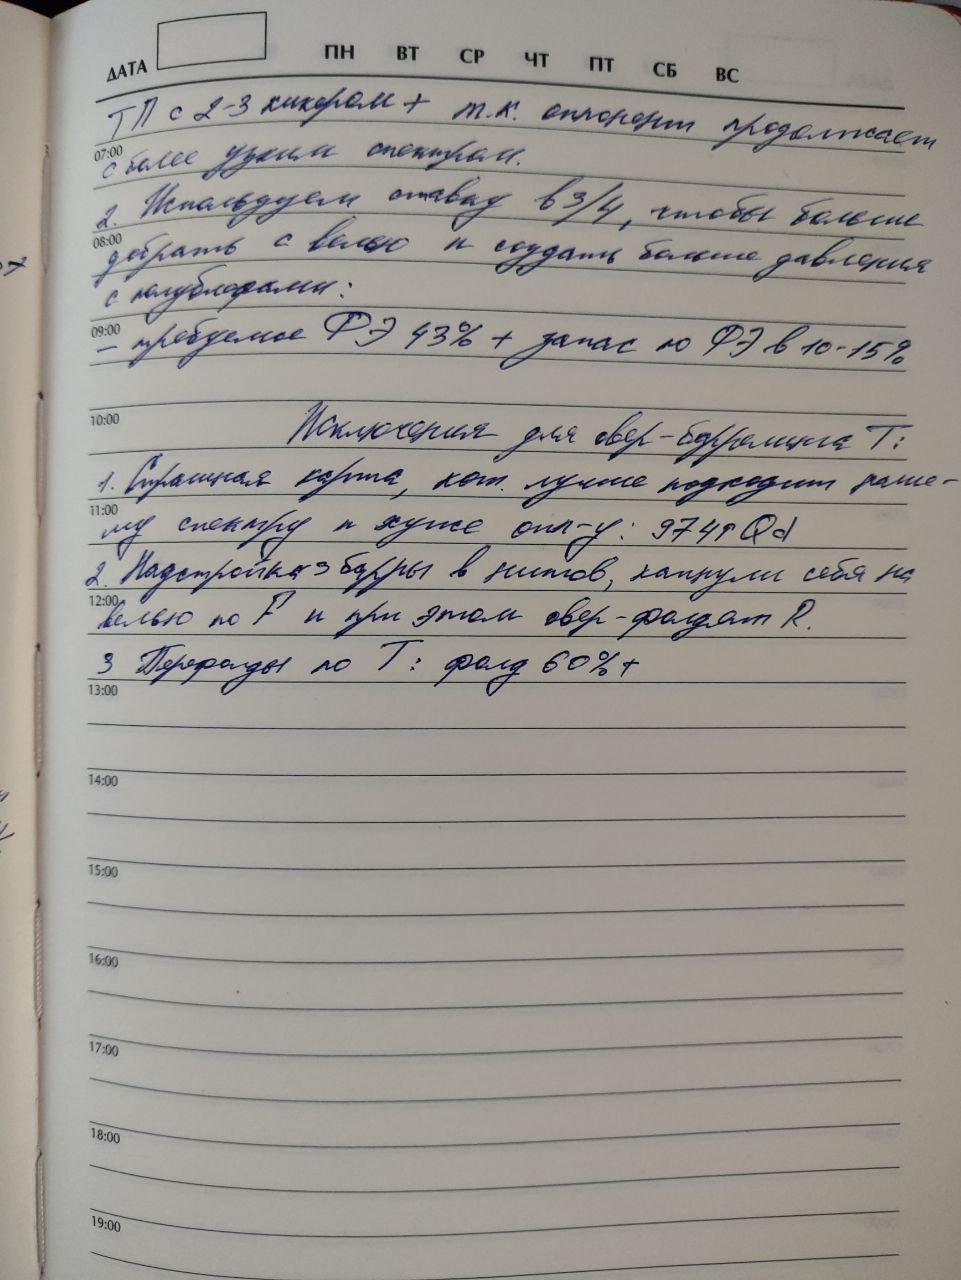 ДАТА ПН ВТ СР ЧТ ПТ СБ ВС
ТП с 2-3 кикером + т.к. оппонент продолжает
07:00
с более узким спектром.
2. Используем ставку в 3/4, чтобы больше
08:00
добрать с велью и создать больше давления
с полублефами:
09:00
– требуемое ФЭ 43% + запас по ФЭ в 10-15%
10:00
Исключения для овер-баррелинга Т:
1. Страшная карта, кот. лучше подходит наше-
11:00
му спектру и хуже опп-у: 974r Qd
2. Надстройка 3 барры в нитов, капнули себя на
12:00
велью по F и при этом овер-фолдят R.
3 Перефолды по Т: фолд 60%+
13:00
14:00
15:00
16:00
17:00
18:00
19:00